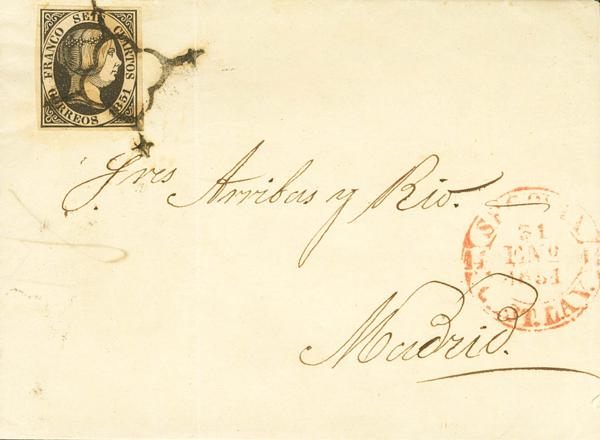 FRANCO SEIS CUARTOS
CORREOS 1851
Sres Arribas y Rio.
SEGOVIA
31
ENº
1851
C. LA V.
Madrid.